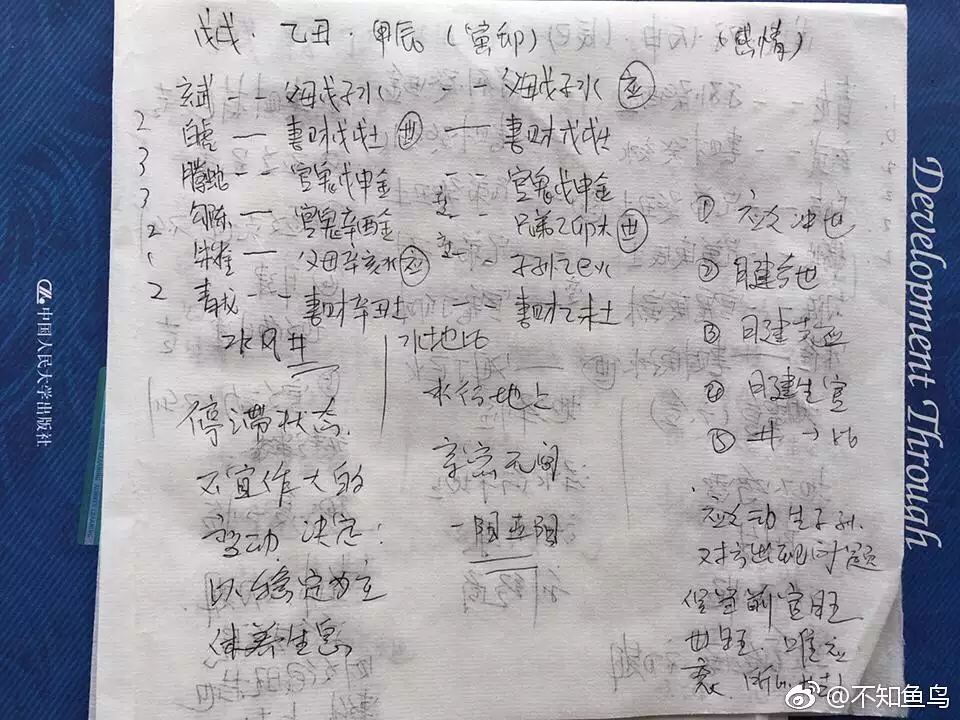 戊戌·乙丑·甲辰(寅卯) (感情)
玄武 -- 父母戊子水 -- 父母戊子水 应
2 白虎 — 妻财戊戌土 世 — 妻财戊戌土
3 腾蛇 -- 官鬼戊申金 -- 官鬼戊申金
3 勾陈 — 官鬼辛酉金 -- 兄弟乙卯木 世
2 朱雀 — 父母辛亥水 应 -- 子孙乙巳火
青龙 -- 妻财辛丑土 -- 妻财乙未土
水风井
水地比
停滞状态
不宜作大的
变动 决定:
以稳定为主
休养生息
水行地上
亲密无间
一阳五阴
① 应爻冲世
② 日建合世
③ 日建克应
④ 日建生官
⑤ 井→比
应爻动
对方出现问题
但当前官旺
世旺 唯应
衰
中国人民大学出版社
Development Through
@不知鱼鸟